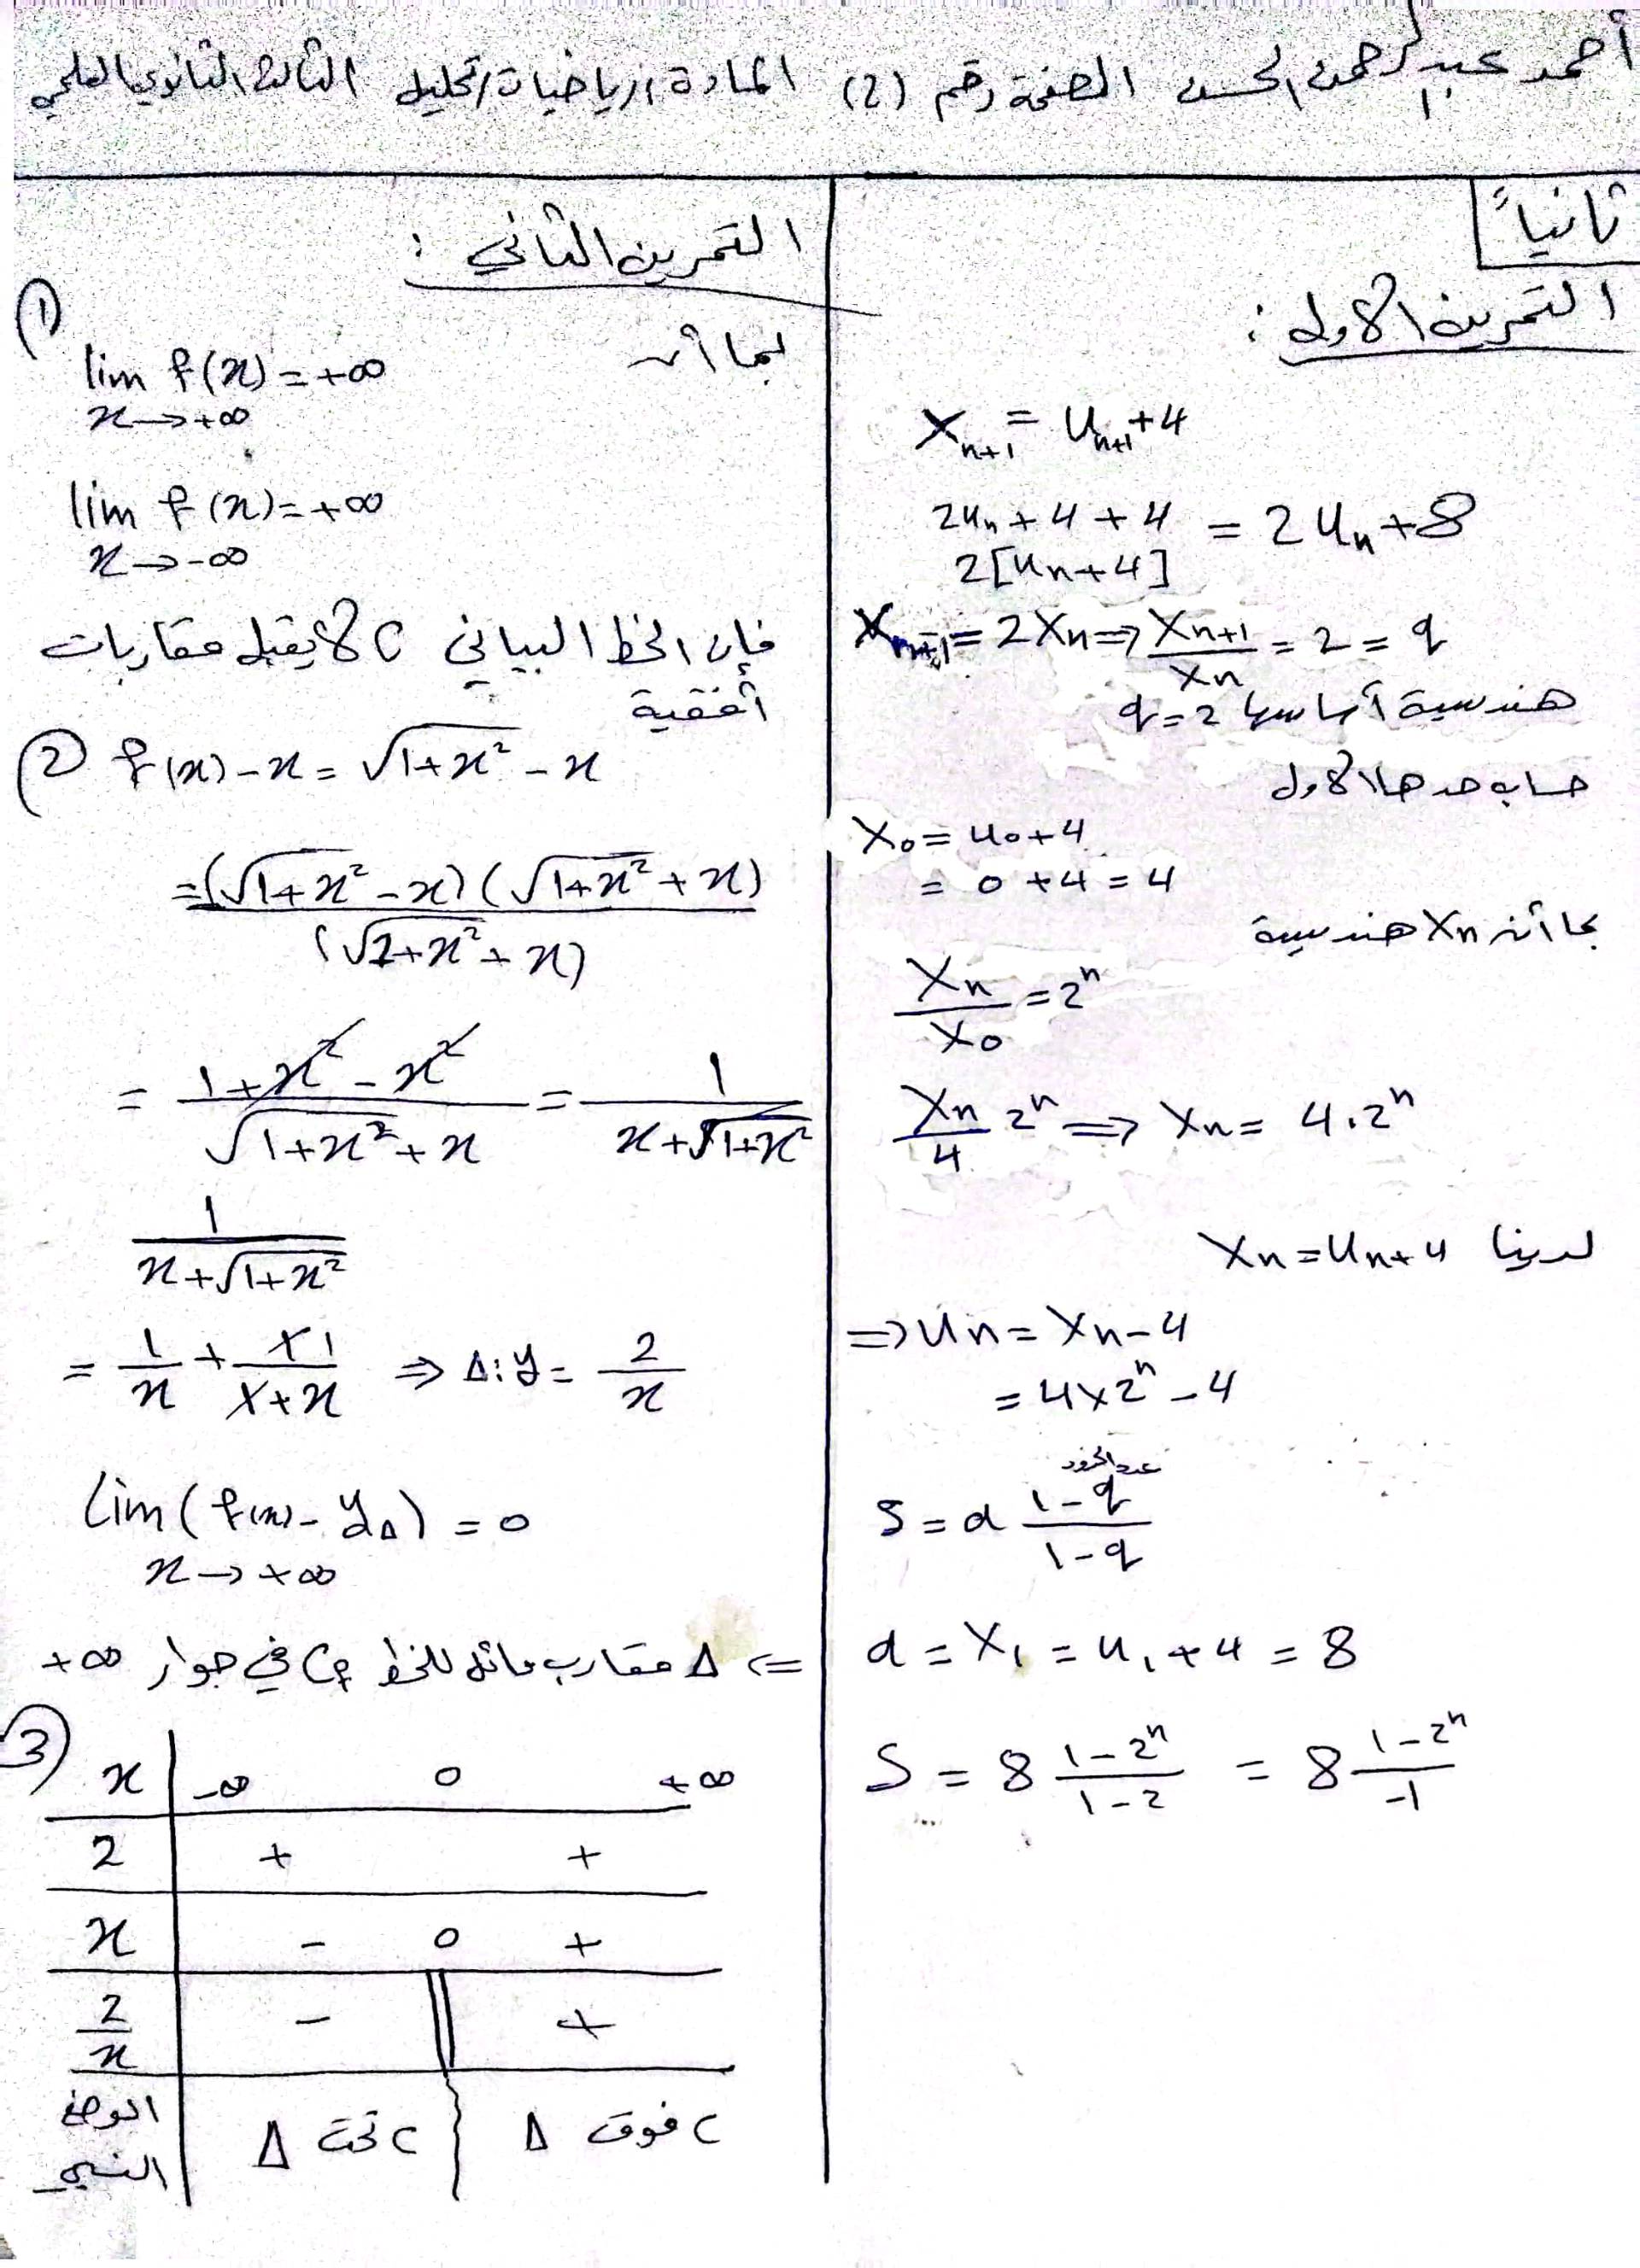 أحمد عبد الرحمن الحسن الصفحة رقم (2) المادة: رياضيات/تحليل الثالث الثانوي العلمي
ثانياً
التمرين الأول :
X_{n+1} = U_{n+1} + 4
2u_n + 4 + 4 = 2U_n + 8
2[U_n + 4]
X_{n+1} = 2X_n ⇒ X_{n+1}/X_n = 2 = q
هندسية أساسها q = 2
حساب حدها الأول
X_0 = u_0 + 4
= 0 + 4 = 4
بما أن X_n هندسية
X_n/X_0 = 2^n
X_n/4 2^n ⇒ X_n = 4.2^n
لدينا X_n = U_n + 4
⇒ U_n = X_n - 4
= 4×2^n - 4
عدد الحدود
S = a (1 - q)/(1 - q)
a = X_1 = u_1 + 4 = 8
S = 8 (1 - 2^n)/(1 - 2) = 8 (1 - 2^n)/(-1)
التمرين الثاني :
① بما أن
lim f(x) = +∞
x → +∞
lim f(x) = +∞
x → -∞
فإن الخط البياني C لا يقبل مقاربات
أفقية
② f(x) - x = √(1+x²) - x
= (√(1+x²) - x)(√(1+x²) + x)
(√(1+x²) + x)
= (1 + x² - x²)/(√(1+x²) + x) = 1/(x + √(1+x²))
1/(x + √(1+x²))
= 1/x + x1/(x + x) ⇒ Δ: y = 2/x
lim (f(x) - y_Δ) = 0
x → +∞
⇐ Δ مقارب مائل للخط C_f في جوار +∞
③
x -∞ 0 +∞
2 + +
x - 0 +
2/x - || +
الوضع النسبي C تحت Δ C فوق Δ